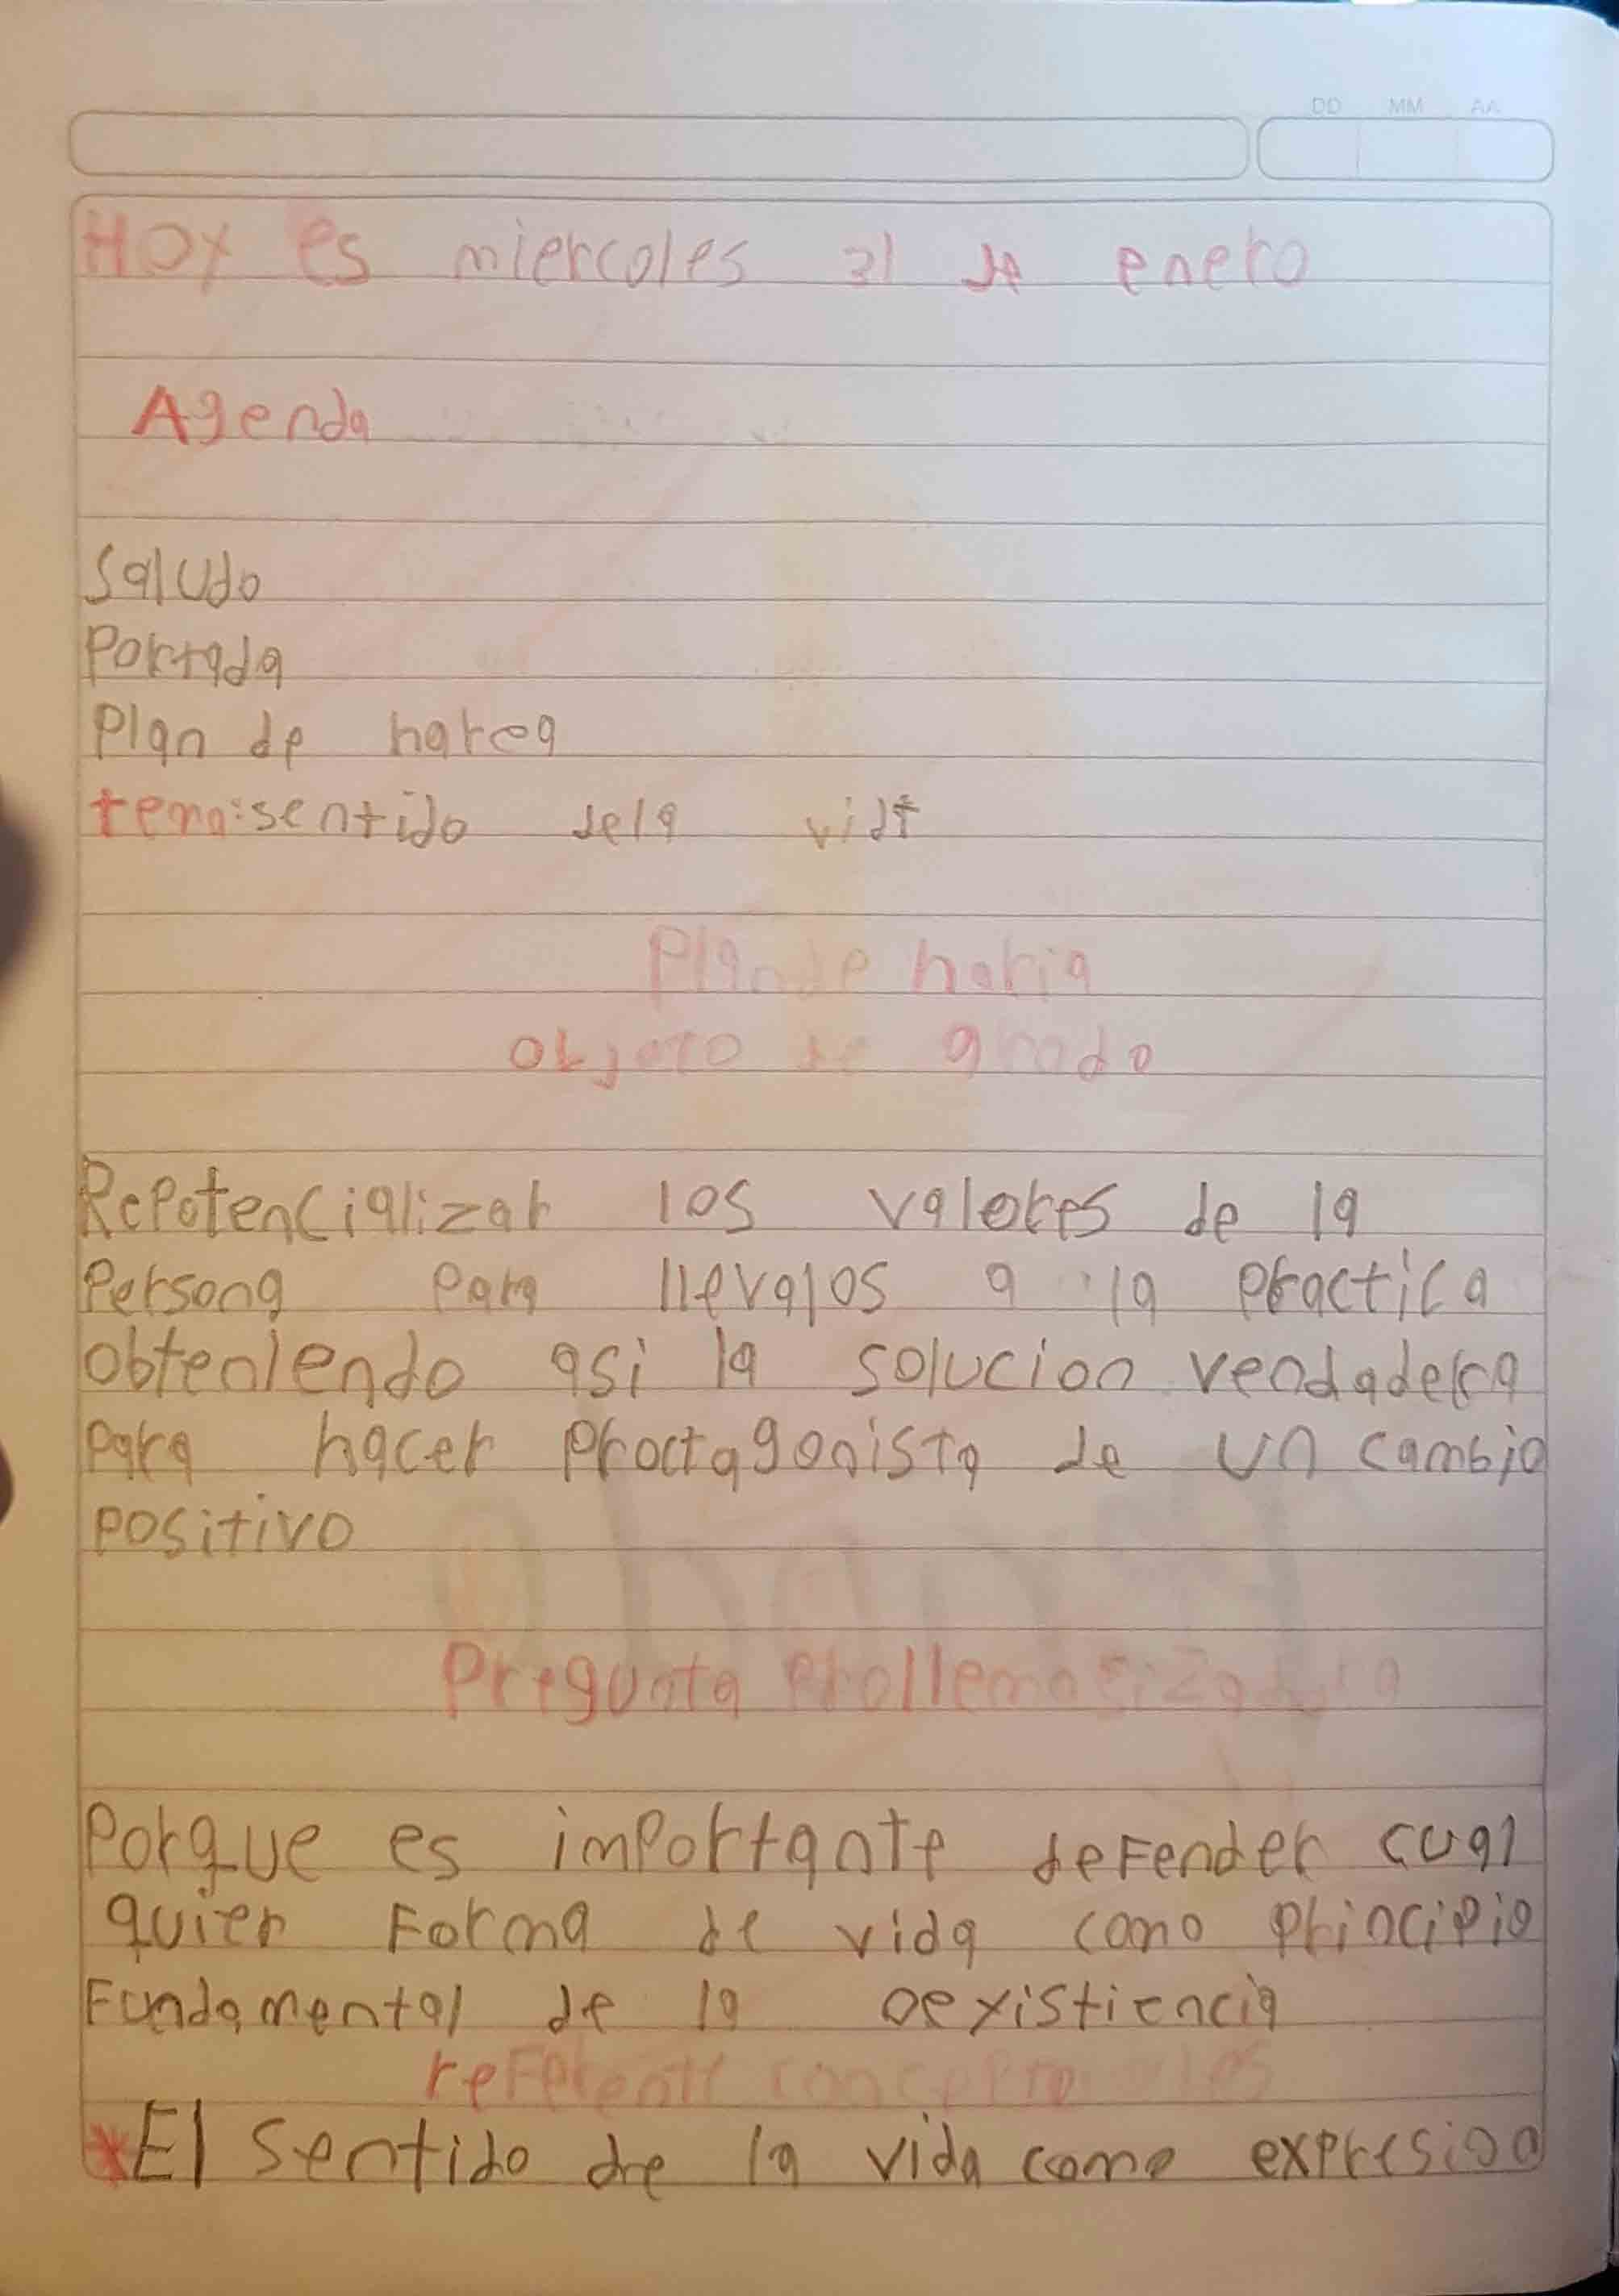 DD MM AA
Hoy es miercoles 31 de enero
Agenda
Saludo
Portada
Plan de harea
tema: sentido dela vida
Plan de haria
objeto de grado
Repotencializar los valores de la
Persona para llevalos a la practica
obteniendo asi la solucion vendadera
para hacer proctagonista de un cambio
positivo
Pregunta Prollemasizadora
Porque es importante defender cual
quier Forma de vida como principio
Fundamental de la oexistiencia
referente conceptuales
*El sentido de la vida como expresion